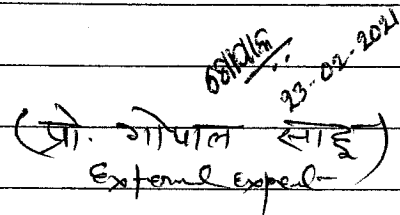 ଗୋପାଳ
23-02-2021
(प्रो. गोपाल साहू)
External Expert